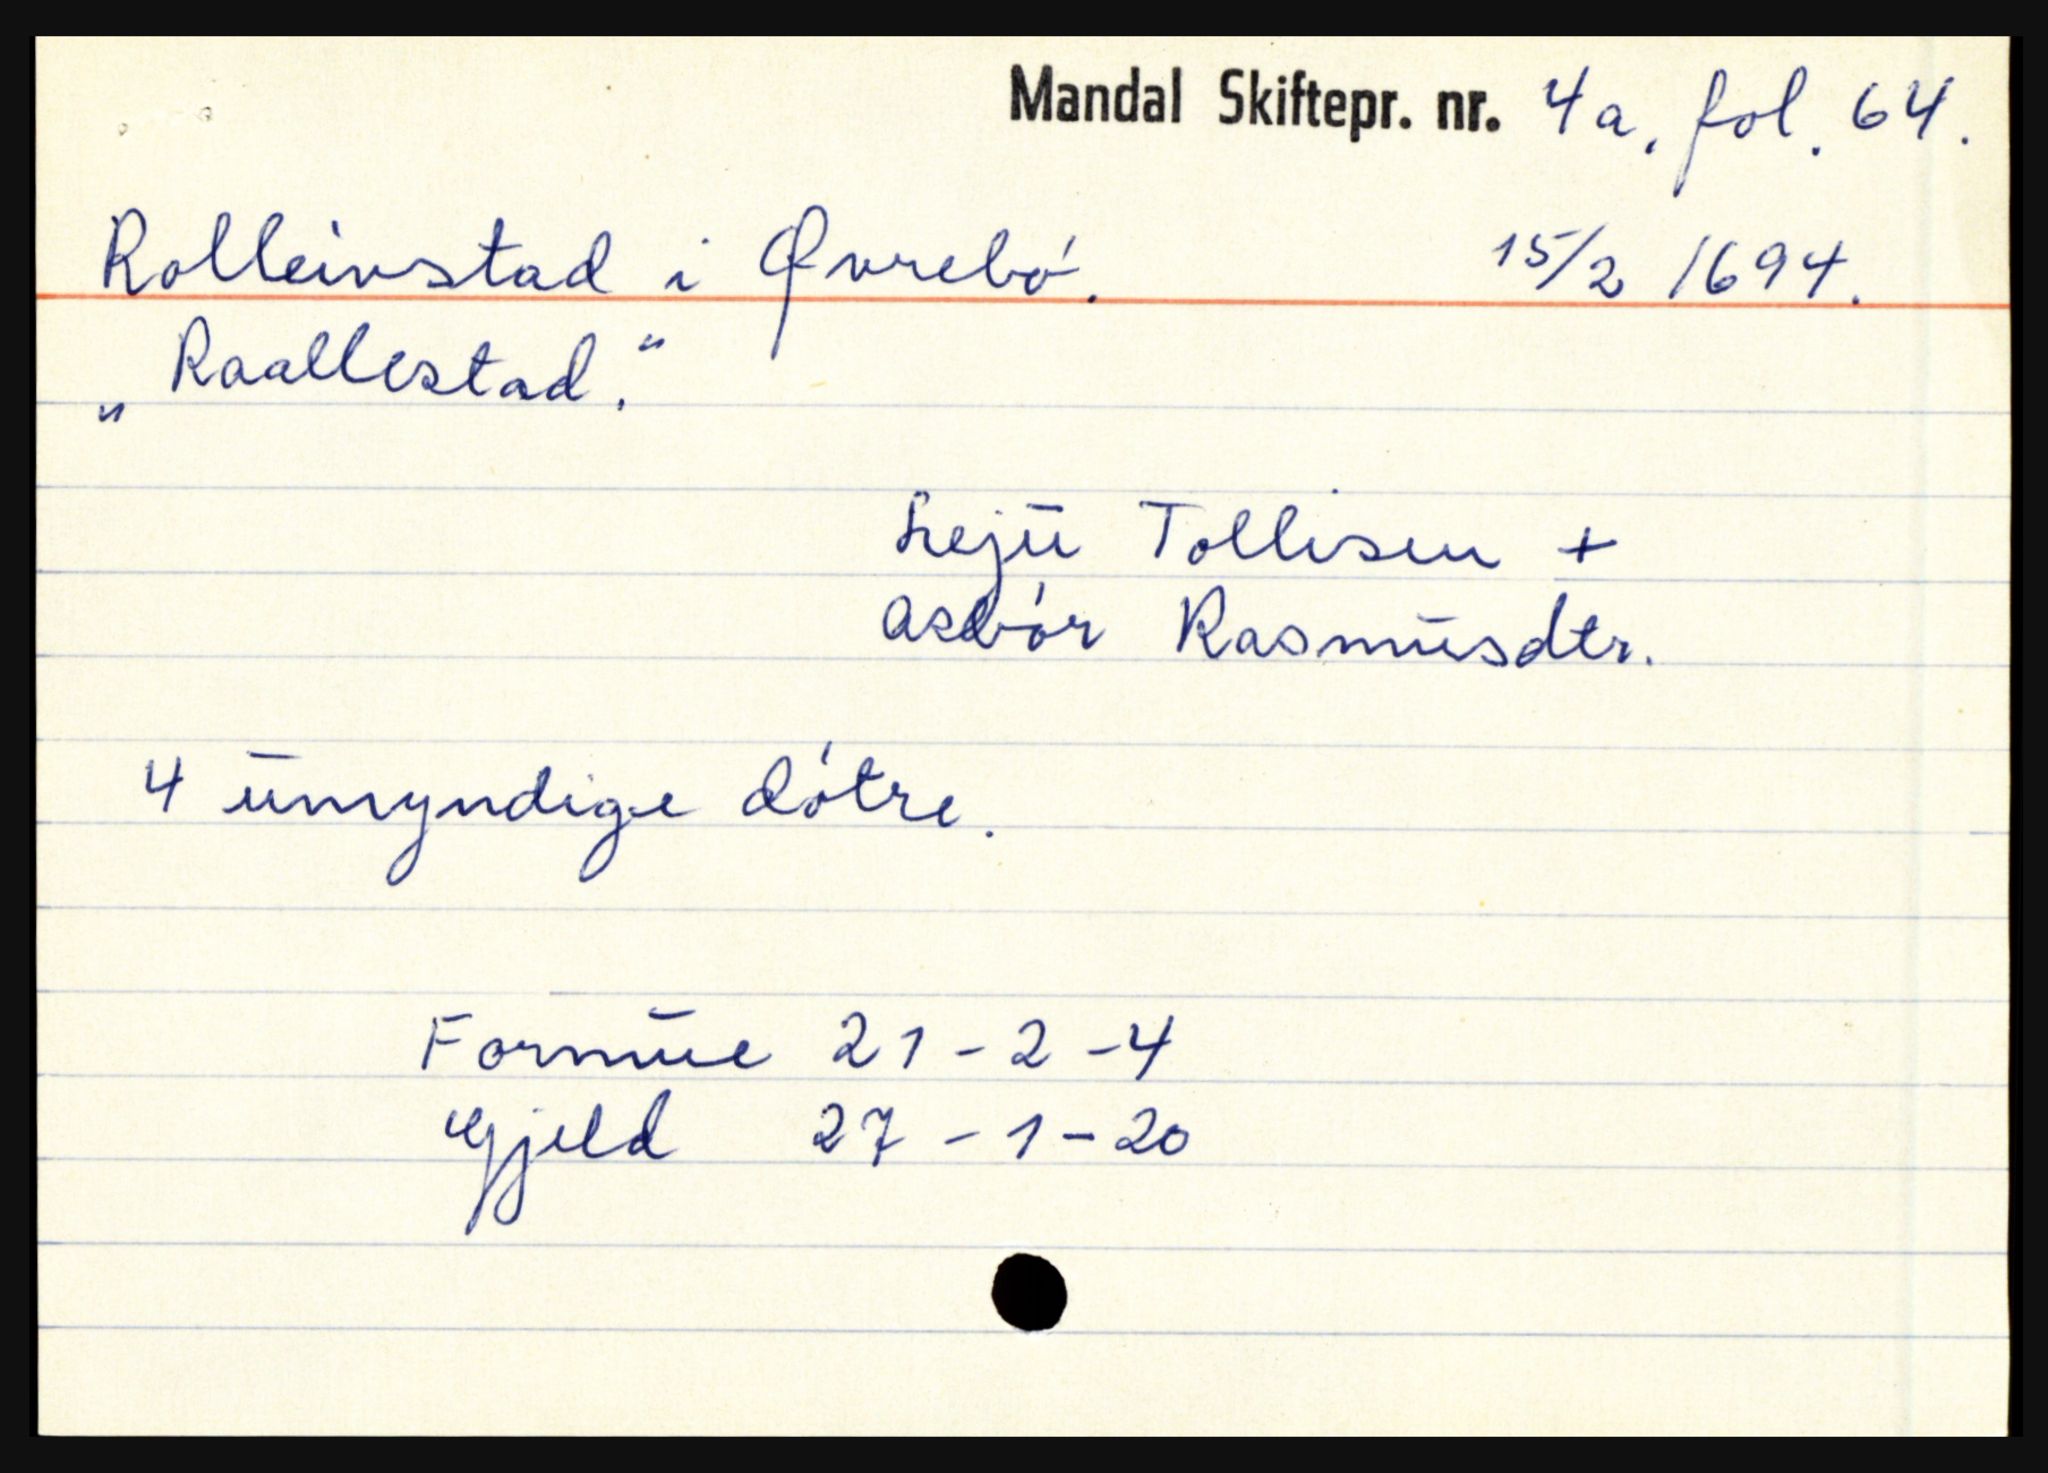 Mandal Skiftepr. nr. 4a, fol. 64.
Rolleivstad i Øvrebø. 15/2 1694.
„Raallestad."
Leju Tollisen +
Asbør Rasmusdtr.
4 umyndige døtre.
Formue 21-2-4
Gjeld 27-1-20